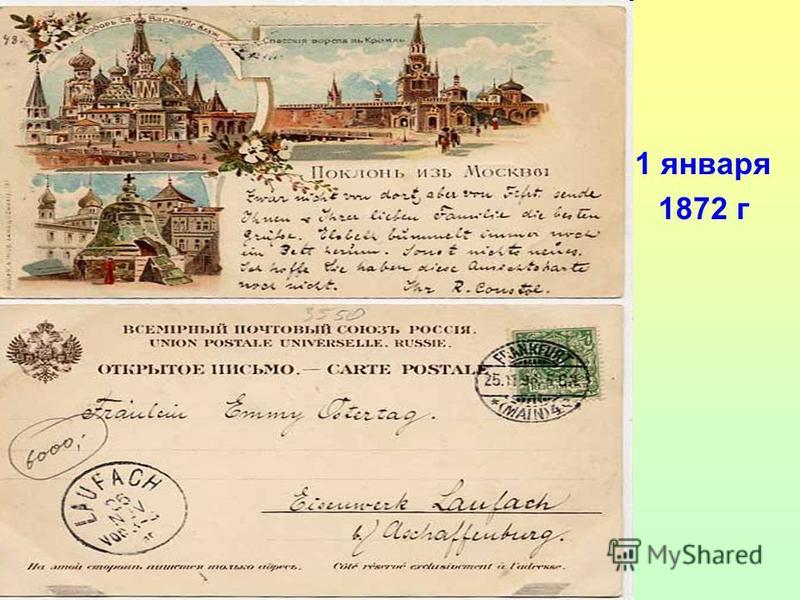 48.
Соборъ Св. Василія Блаж.
Спасскія ворота въ Кремль
Поклонъ изъ Москвы
Zwar nicht von dort, aber von Frft. sende
Ihnen & Ihrer lieben Familie die besten
Grüße. Elsbeth bummelt immer noch
im Bett herum. Sonst nichts neues.
Ich hoffe Sie haben diese Ansichtskarte
noch nicht. Ihr R.
1 января
1872 г
3550
ВСЕМІРНЫЙ ПОЧТОВЫЙ СОЮЗЪ РОССІЯ.
UNION POSTALE UNIVERSELLE. RUSSIE.
ОТКРЫТОЕ ПИСЬМО. — CARTE POSTALE
FRANKFURT
25.11.96
*(MAIN)4
Fräulein Emmy Ostertag.
6000,-
LAUFACH
26
NOV
Eisenwerk Laufach
b/ Aschaffenburg.
На этой сторонѣ пишется только адресъ. Côté réservé exclusivement à l'adresse.
MyShared